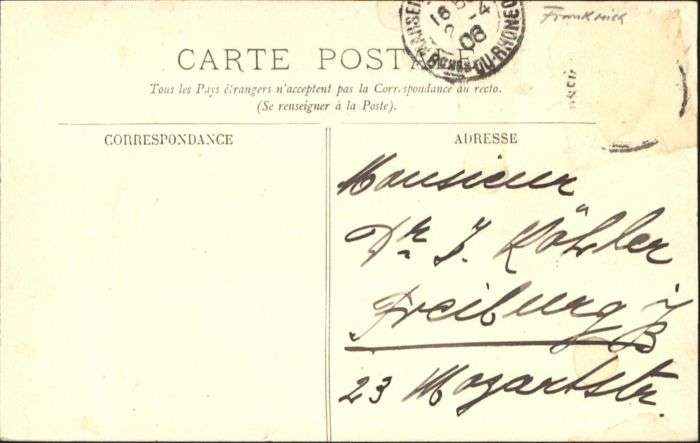 Frankreich
MARSEI
16
2 -4
06
Bches DU-RHONE
CARTE POSTALE
Tous les Pays étrangers n'acceptent pas la Correspondance au recto.
(Se renseigner à la Poste).
CORRESPONDANCE
ADRESSE
Monsieur
Dr J. Köhler
Freiburg i/B
23 Mozartstr.